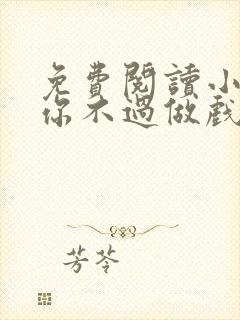 免費閱讀小
你不過做戲
芳苓